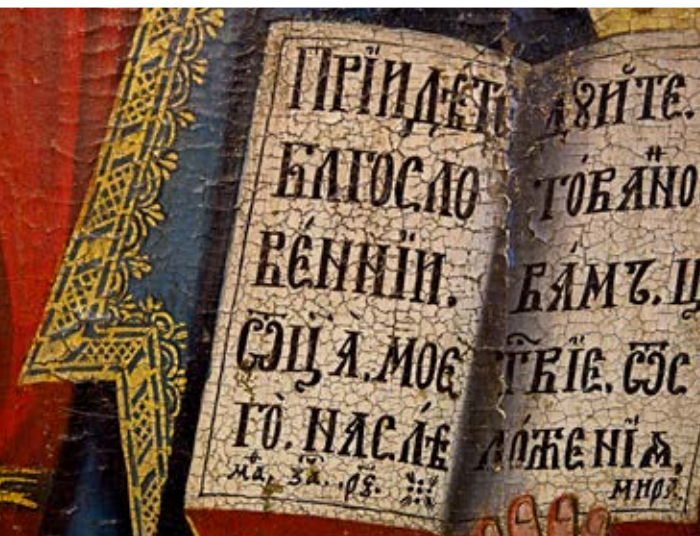 ПРЇИДѢТЕ
БЛГОСЛО
ВЕ́ННЇИ.
ѾЦ҃А. МОЕ
ГО̀. НАСЛѢ
ма, за, .рѕ.
ДꙊ́ИТЕ.
ТО́ВАНО
ВА́МЪ. Ц
ТВЇЕ. ѾС
ЛО́ЖЕНЇѦ,
мира.